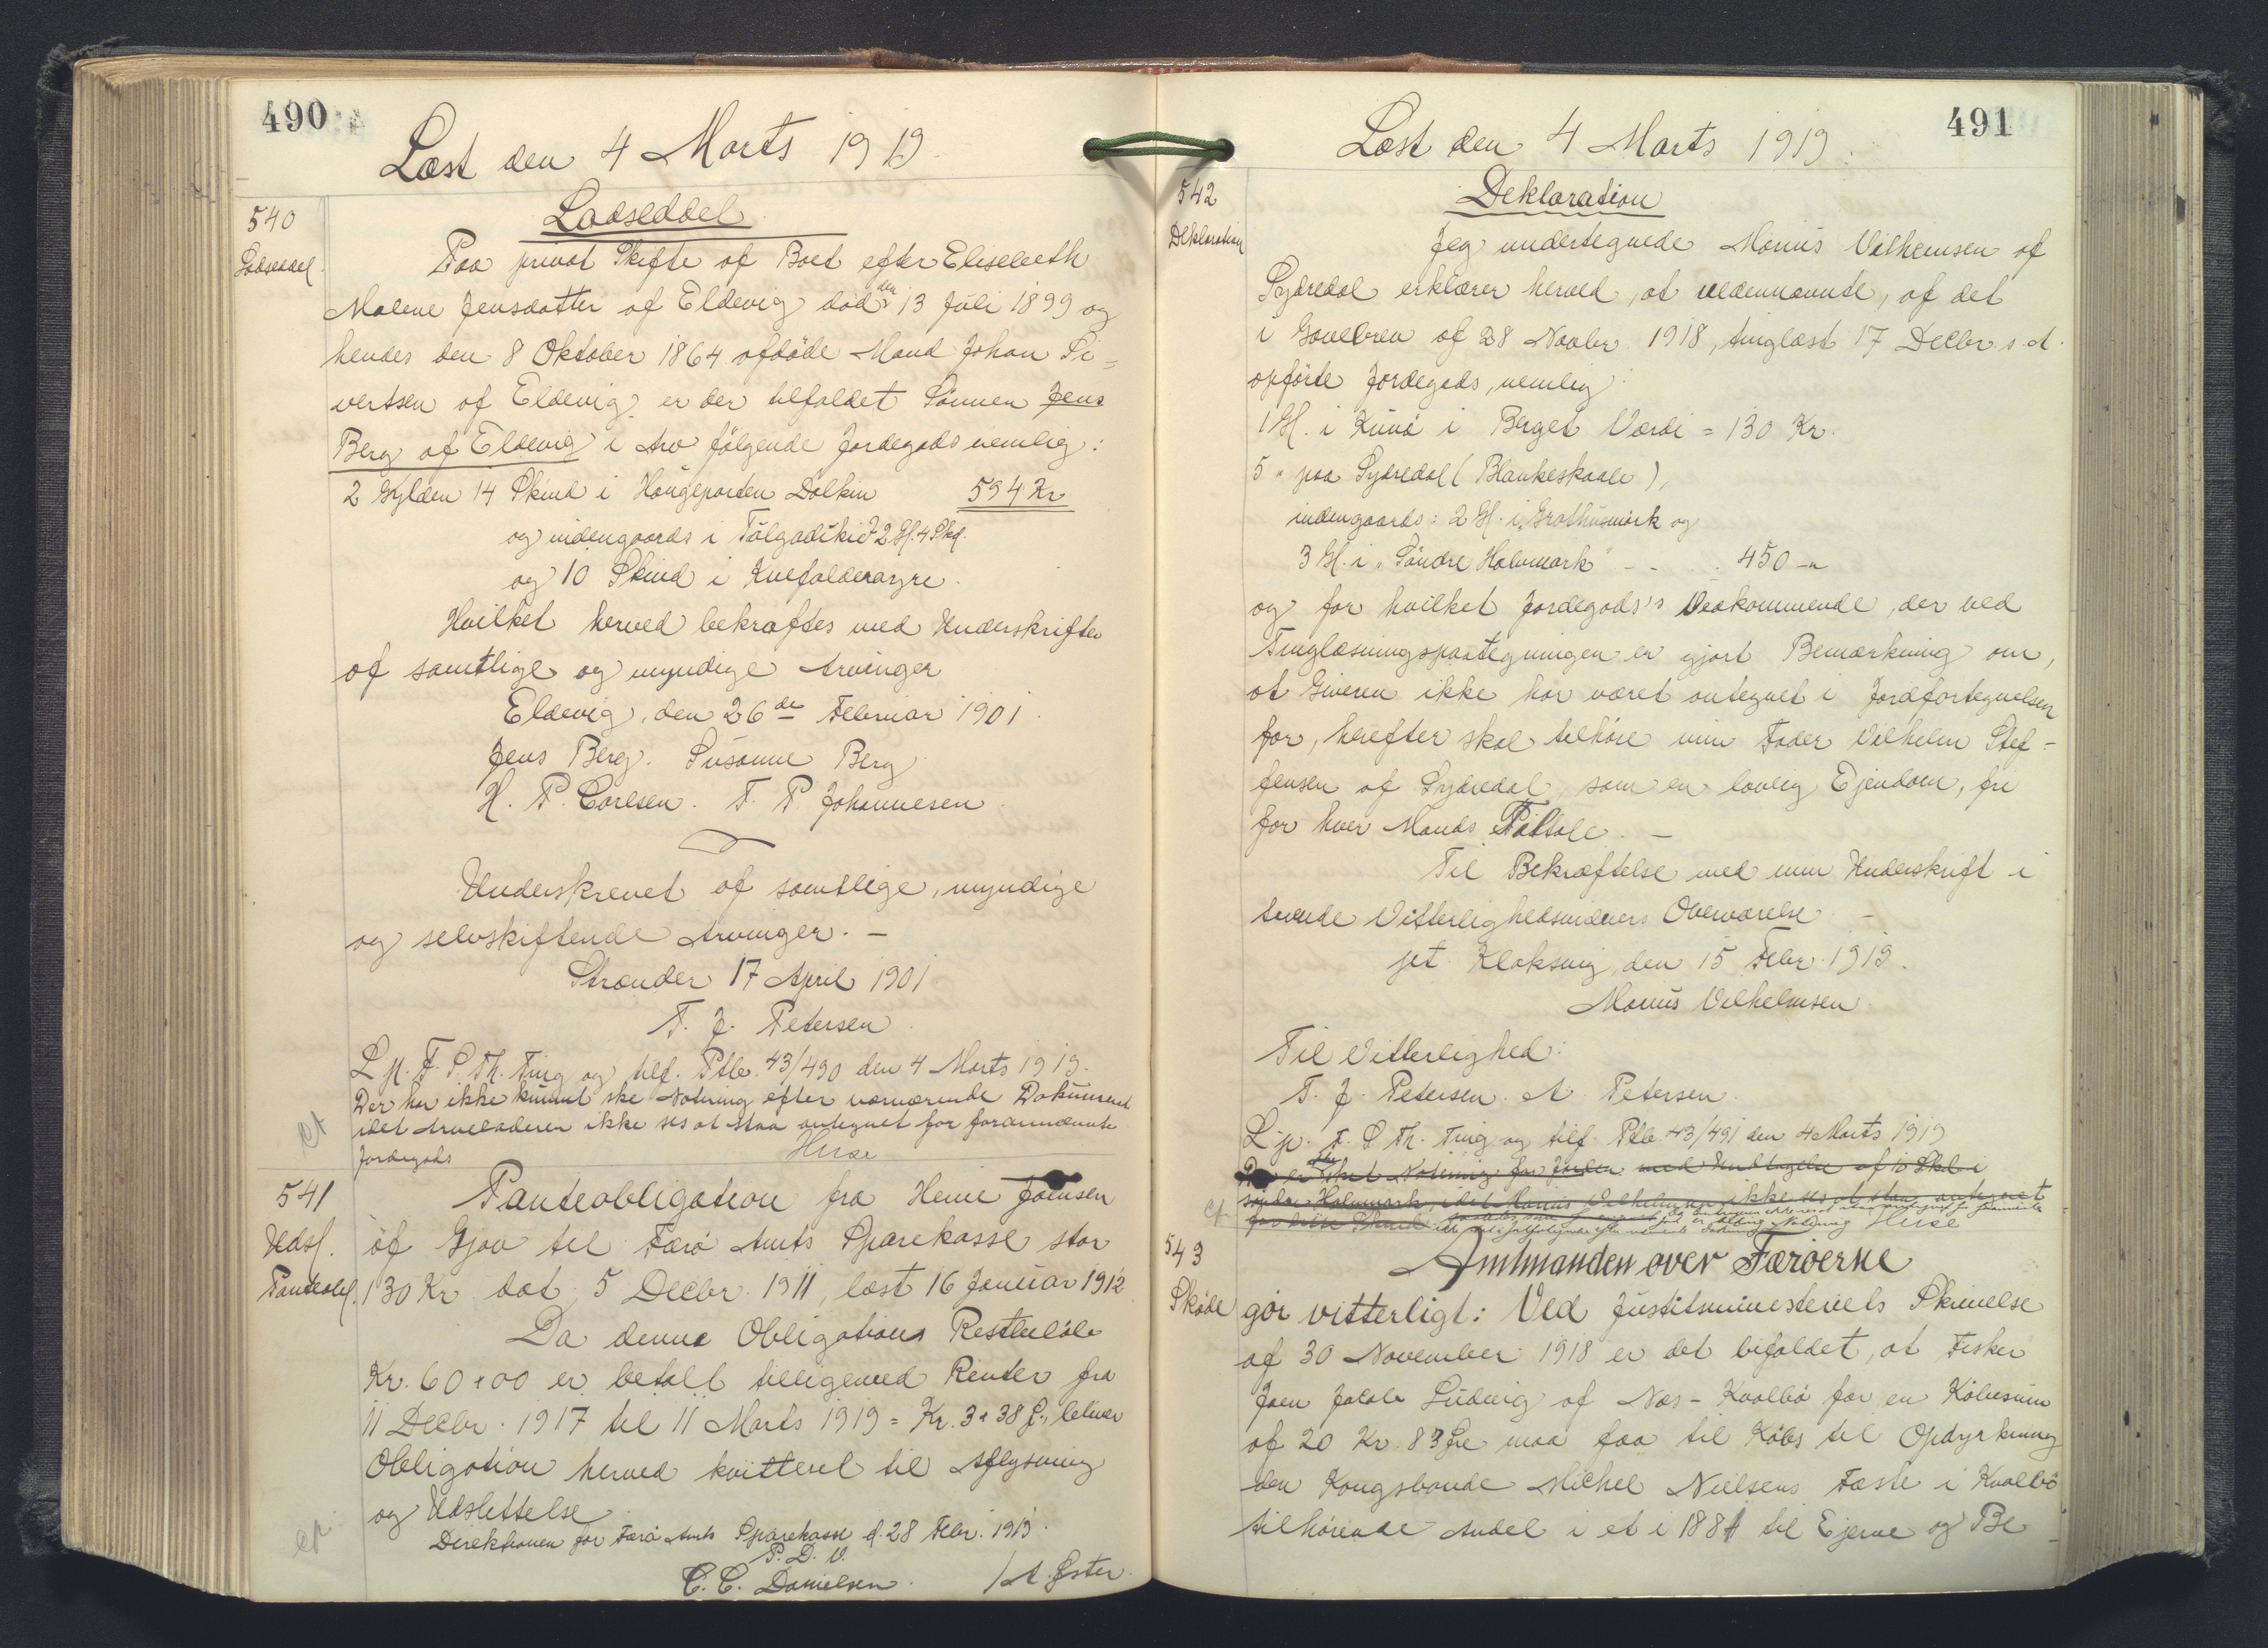 490
Læst den 4 Marts 1919.
540
Lodseddel.
Lodseddel
Paa privat Skifte af Boet efter Elisebeth
Malene Jensdatter af Eldevig død den 13 Juli 1899 og
hendes den 8 Oktober 1864 afdöde Mand Johan Si=
vertsen af Eldevig er der tilfaldet Sönnen Jens
Berg af Eldevig i Arv fölgende Jordegods nemlig:
2 Gylden 14 Skind i Höugeparten Dölkin 594 Kr
og indengaards i Tölgadikid 2 Gl. 4 Skd.
og 10 Skind i Kuefalderayre.
Hvilket herved bekræftes med Underskrifter
af samtlige og myndige Arvinger
Eldevig, den 26de Februar 1901.
Jens Berg. Susanne Berg
H. P. Carlsen. T. P. Johannesen.
Underskrevet af samtlige, myndige
og selvskiftende Arvinger. -
Strænder 17 April 1901
T. J. Petersen.
L. p. F. S. Th. Ting og tilf. Ptb. 43/490 den 4 Marts 1919.
Der har ikke kunnet ske Notering efter nærværende Dokument
idet Arveladeren ikke ses at staa antegnet for forannævnte
Jordegods Huse
541
Udsl.
Panteobl.
Panteobligation fra Heine Joensen
af Gjov til Færø Amts Sparekasse stor
130 Kr dat. 5 Decbr. 1911, læst 16 Januar 1912
Da denne Obligations Restbeløb
Kr. 60 " 00 er betalt tilligemed Renter fra
11 Decbr. 1917 til 11 Marts 1919 = Kr. 3 " 38 Ø., bliver
Obligation herved kvitteret til Aflysning
og Udslettelse
Direktionen for Færø Amts Sparekasse d. 28 Febr. 1919.
P. D. V.
C. C. Danielsen. / A. Øster.
491
Læst den 4 Marts 1919.
542
Deklaration
Deklaration
Jeg undertegnede Marius Vilhelmsen af
Sydredal erklærer herved, at nedennævnte, af det
i Gavebrev af 28 Novbr. 1918, tinglæst 17 Decbr. s. A.
opförte Jordegods, nemlig:
1 Gl. i Kunö i Berget Værdi = 130 Kr.
5 " paa Sydredal (Blankeskaale),
indengaards: 2 Gl. i "Grothusmörk og
3 Gl. i "Söndre Halvmark" - - . 450 - "
og for hvilket Jordegods's Vedkommende, der ved
Tinglæsningspaategningen er gjort Bemærkning om,
at Giveren ikke har været antegnet i Jordfortegnelsen
for, herefter skal tilhöre min Fader Vilhelm Stef-
fensen af Sydredal, som en lovlig Ejendom, fri
for hver Mands Tiltale. -
Til Bekræftelse med min Underskrift i
tvende Vitterlighedsvidners Overværelse. -
pt. Klaksvig, den 15 Febr. 1919.
Marius Vilhelmsen.
Til Vitterlighed:
T. J. Petersen. A. Petersen.
L. p. F. S. Th. Ting og tilf. Ptb. 43/491 den 4 Marts 1919
Der er sket Notering for Jorden med Undtagelse af 10 Skd. i
søndre Halvmark, idet Marius Vilhelmsen ikke ses at staa antegnet
for disse Skind Huse
543
Skøde
Amtmanden over Færøerne
gör vitterligt: Ved Justitsministeriets Skrivelse
af 30 November 1918 er det bifaldet, at Fisker
Joen Jacob Ludvig af Næs - Kvalbö for en Köbesum
af 20 Kr. 83 Øre maa faa til Köbs til Opdyrkning
den Kongsbonde Michel Nielsens Fæste i Kvalbö
tilhörende Andel i et i 1884 til Ejerne og Be-